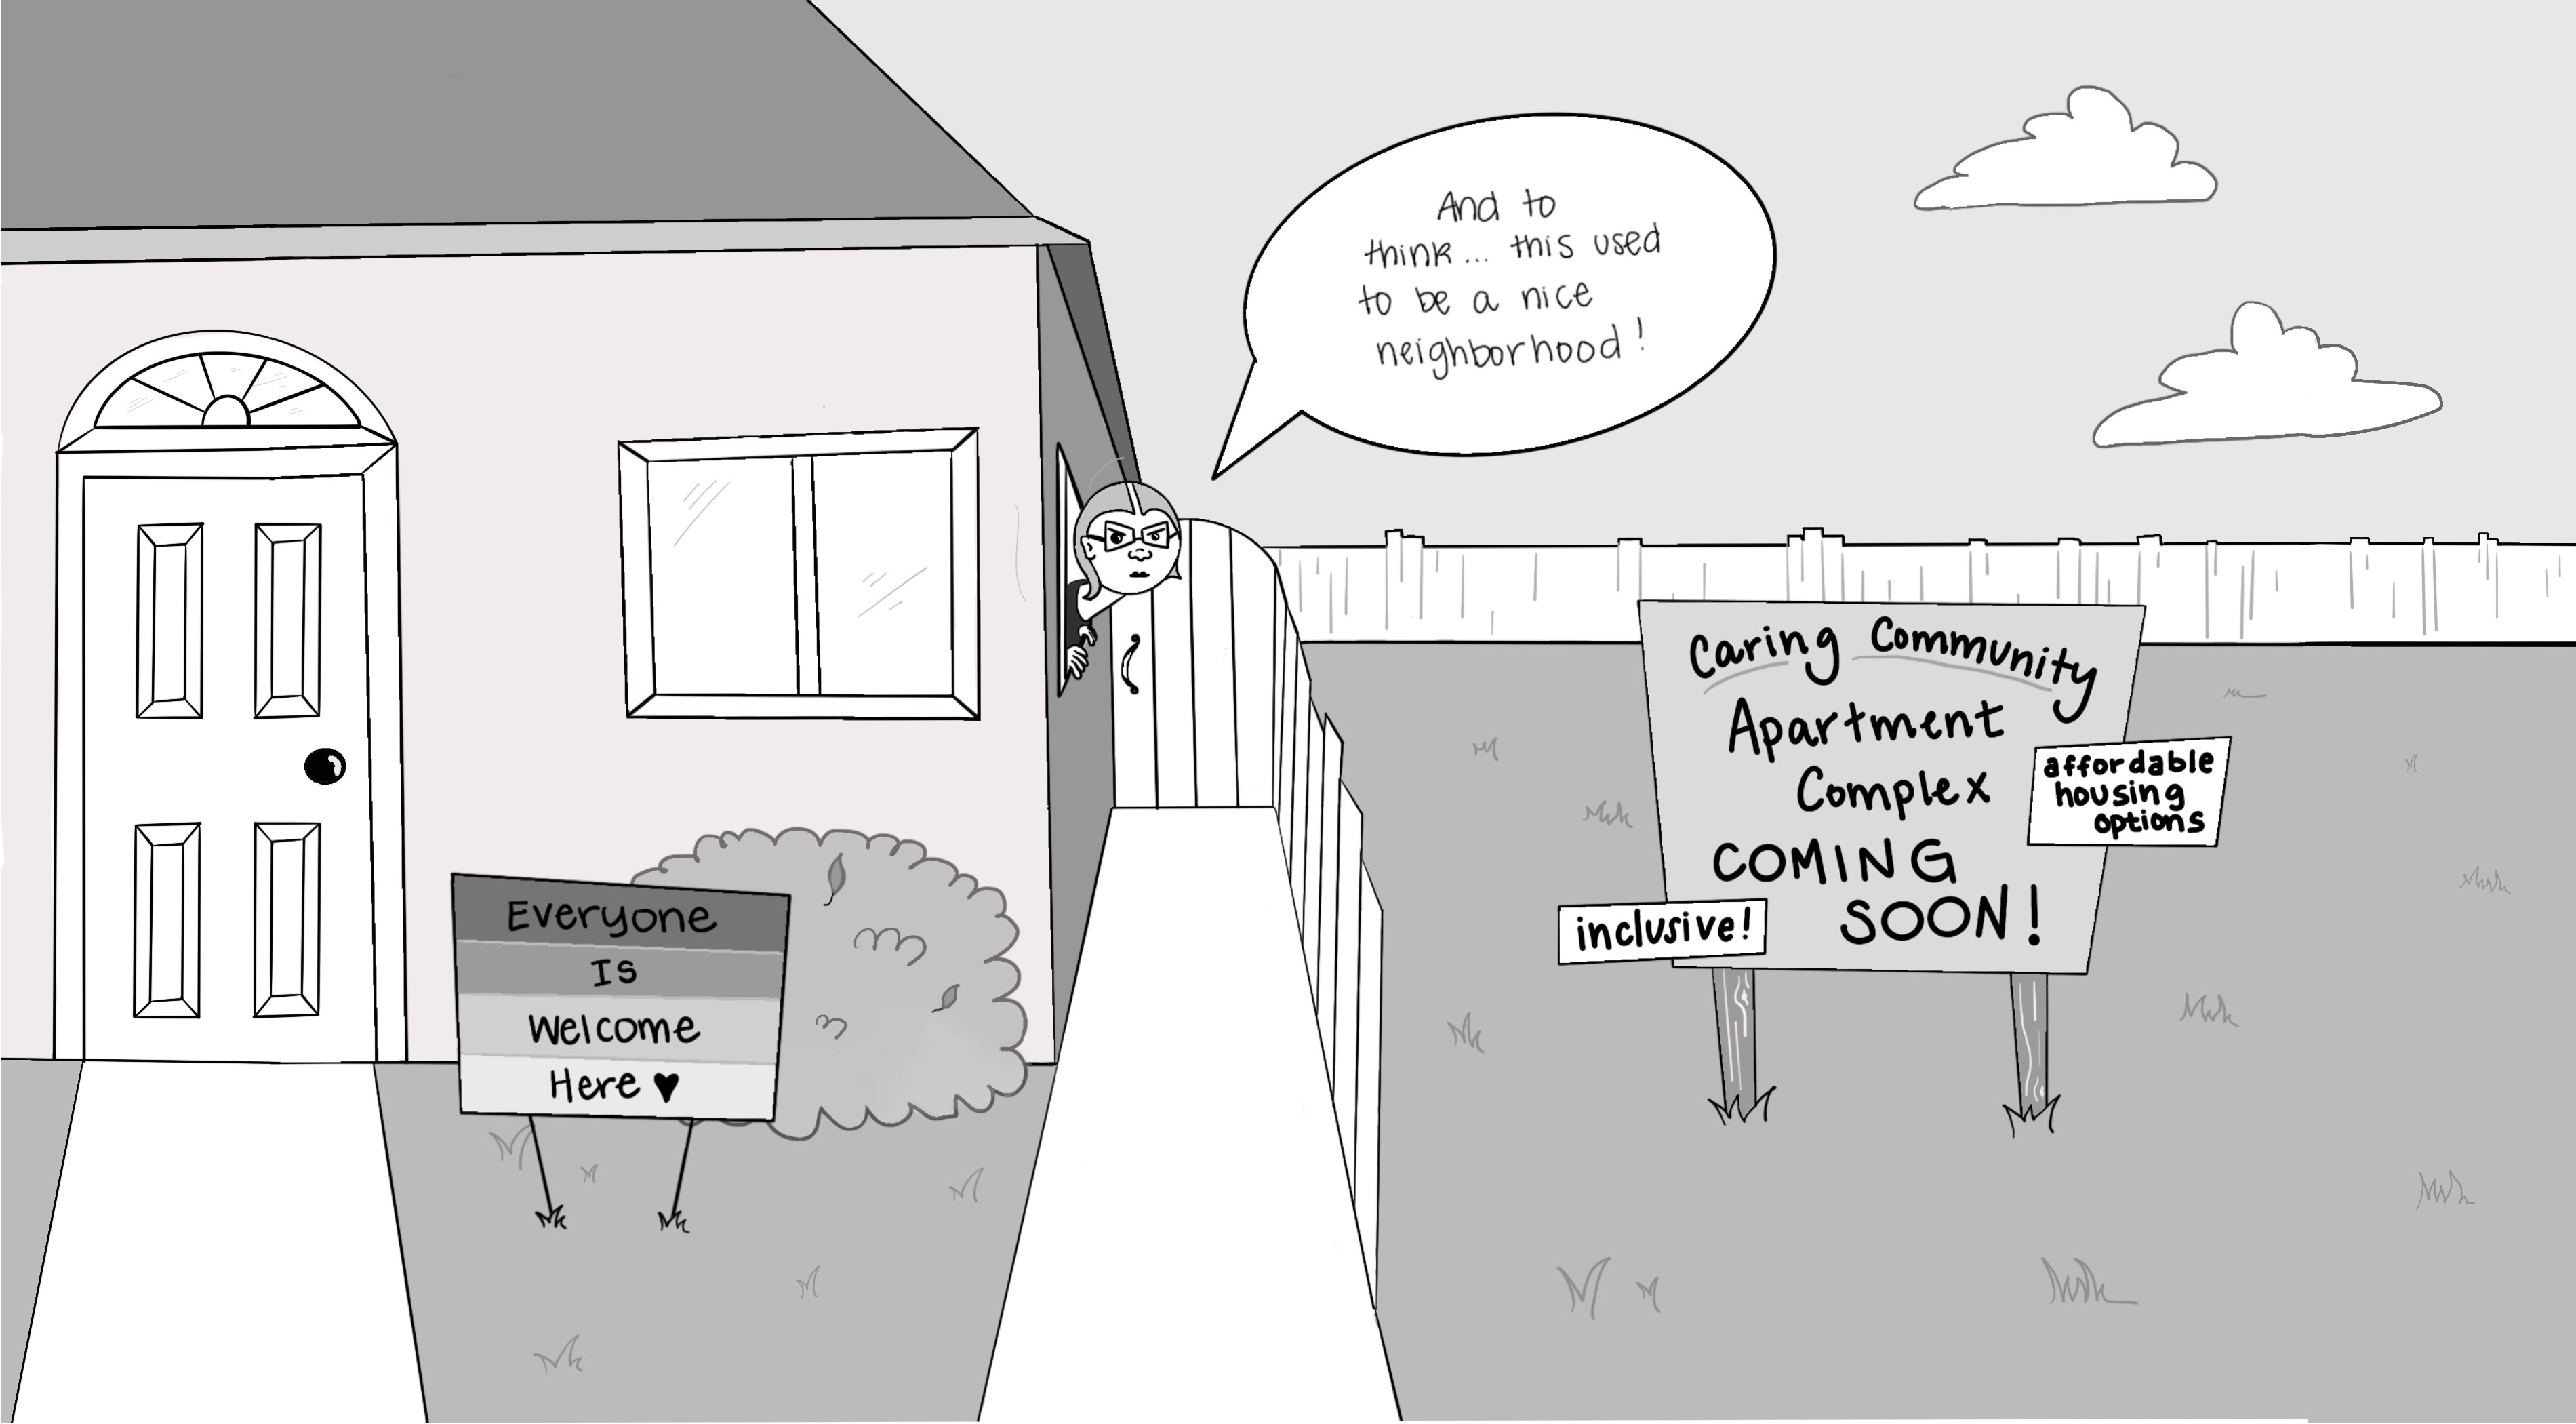 And to
think... this used
to be a nice
neighborhood!
Everyone
Is
Welcome
Here ♥
Caring Community
Apartment
Complex
COMING
SOON!
affordable
housing
options
inclusive!